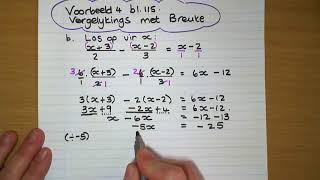 Voorbeeld 4 bl. 115.
Vergelykings met Breuke
b. Los op vir x:
(x+3)/2 - (x-2)/3 = x-2
3 6 · (x+3)/2 - 2 6 · (x-2)/3 = 6x - 12
3(x+3) - 2(x-2) = 6x - 12
3x + 9 - 2x + 4 = 6x - 12
x - 6x = -12 - 13
(÷-5) -5x = -25